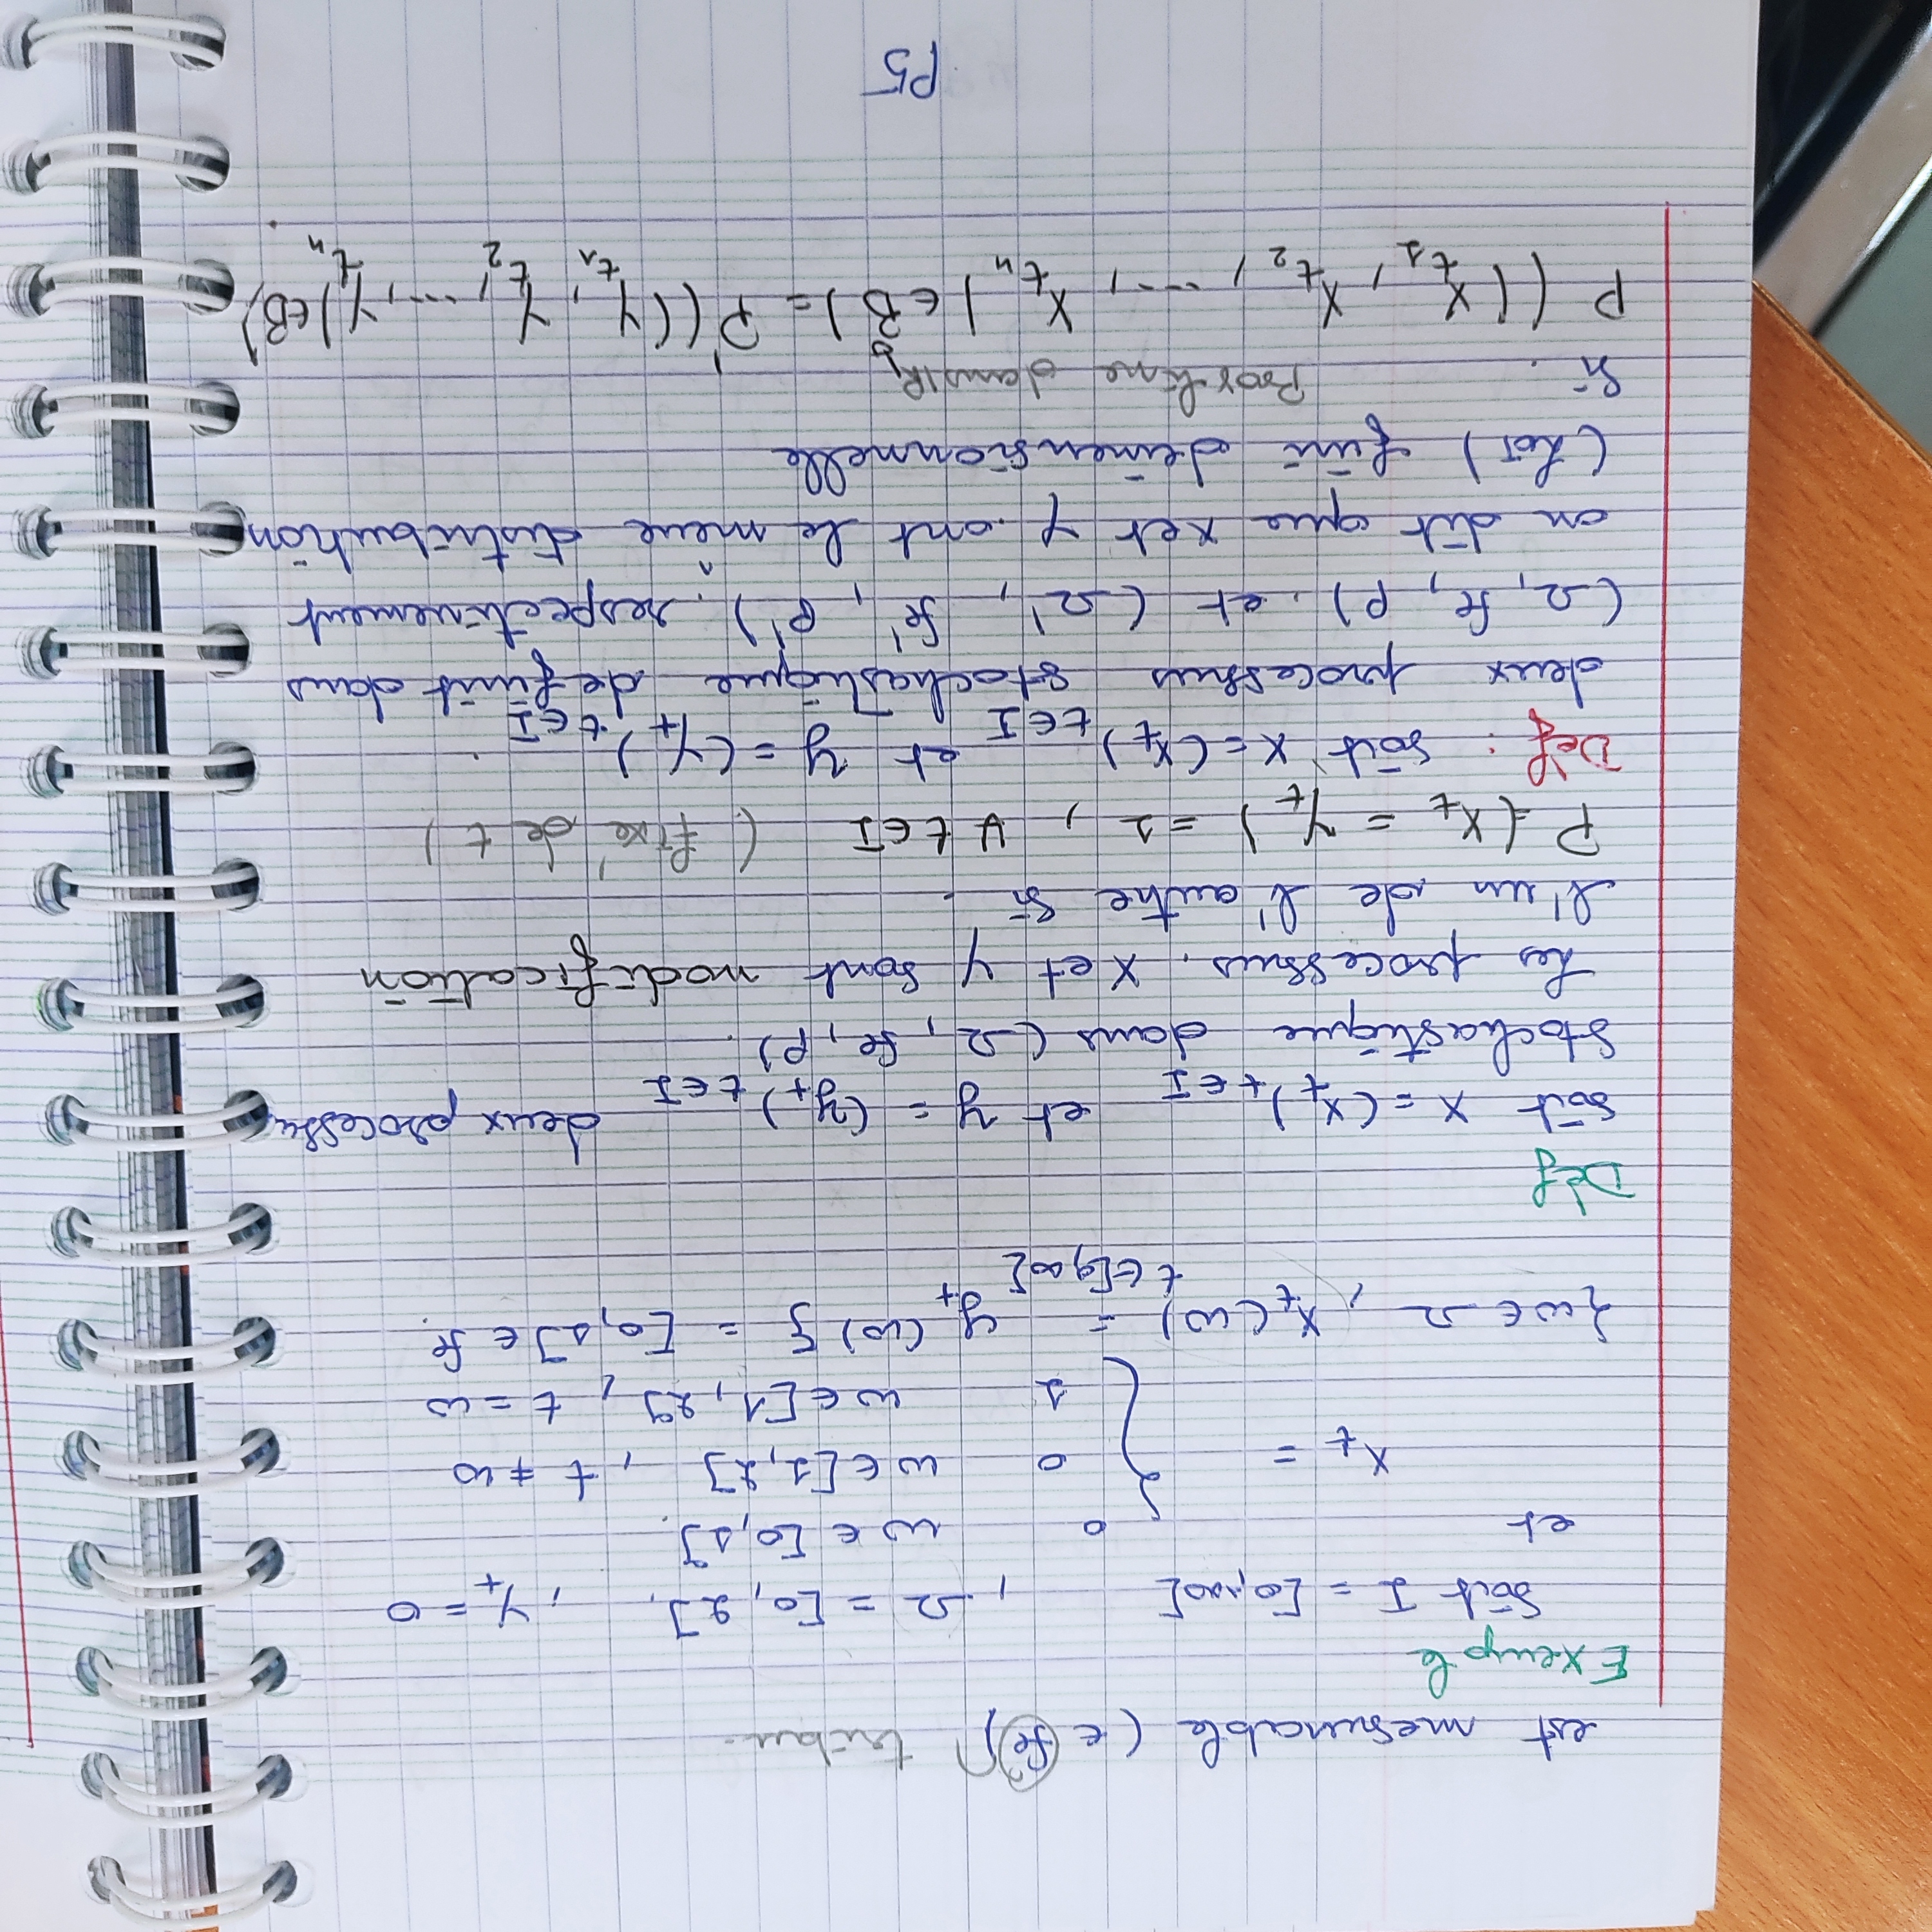 est mesurable (∈ fe) tribu.
Exemple
Soit I = [0,+∞[ , Ω = [0, 2]. , Y_t = 0
et 0 w ∈ [0,1].
X_t = { 0 w ∈ [1,2] , t ≠ w
1 w ∈ [1,2] , t = w
{w ∈ Ω , X_t(w) = y_t(w)} = [0,1] ∈ fe.
t ∈ [0,∞[
Déf
Soit X = (X_t)_{t ∈ I} et y = (y_t)_{t ∈ I} deux processu
Stochastique dans (Ω, fe, P).
Les processus. X et y sont modification
l'un de l'autre Si.
P(X_t = Y_t) = 1 , ∀ t ∈ I ( fixé de t )
Déf : Soit X = (X_t)_{t ∈ I} et y = (Y_t)_{t ∈ I}
deux processus stochastique definit dans
(Ω, fe, P). et (Ω', fe', P'). respectivement
on dit que X et y ont le même distribution
(Loi) fini deimensionnelle
Si. dans IR
P((X_{t_1}, X_{t_2}, ...., X_{t_n}) ∈ B) = P'((Y_{t_1}, Y_{t_2}, ..., Y_{t_n}) ∈ B).
P5